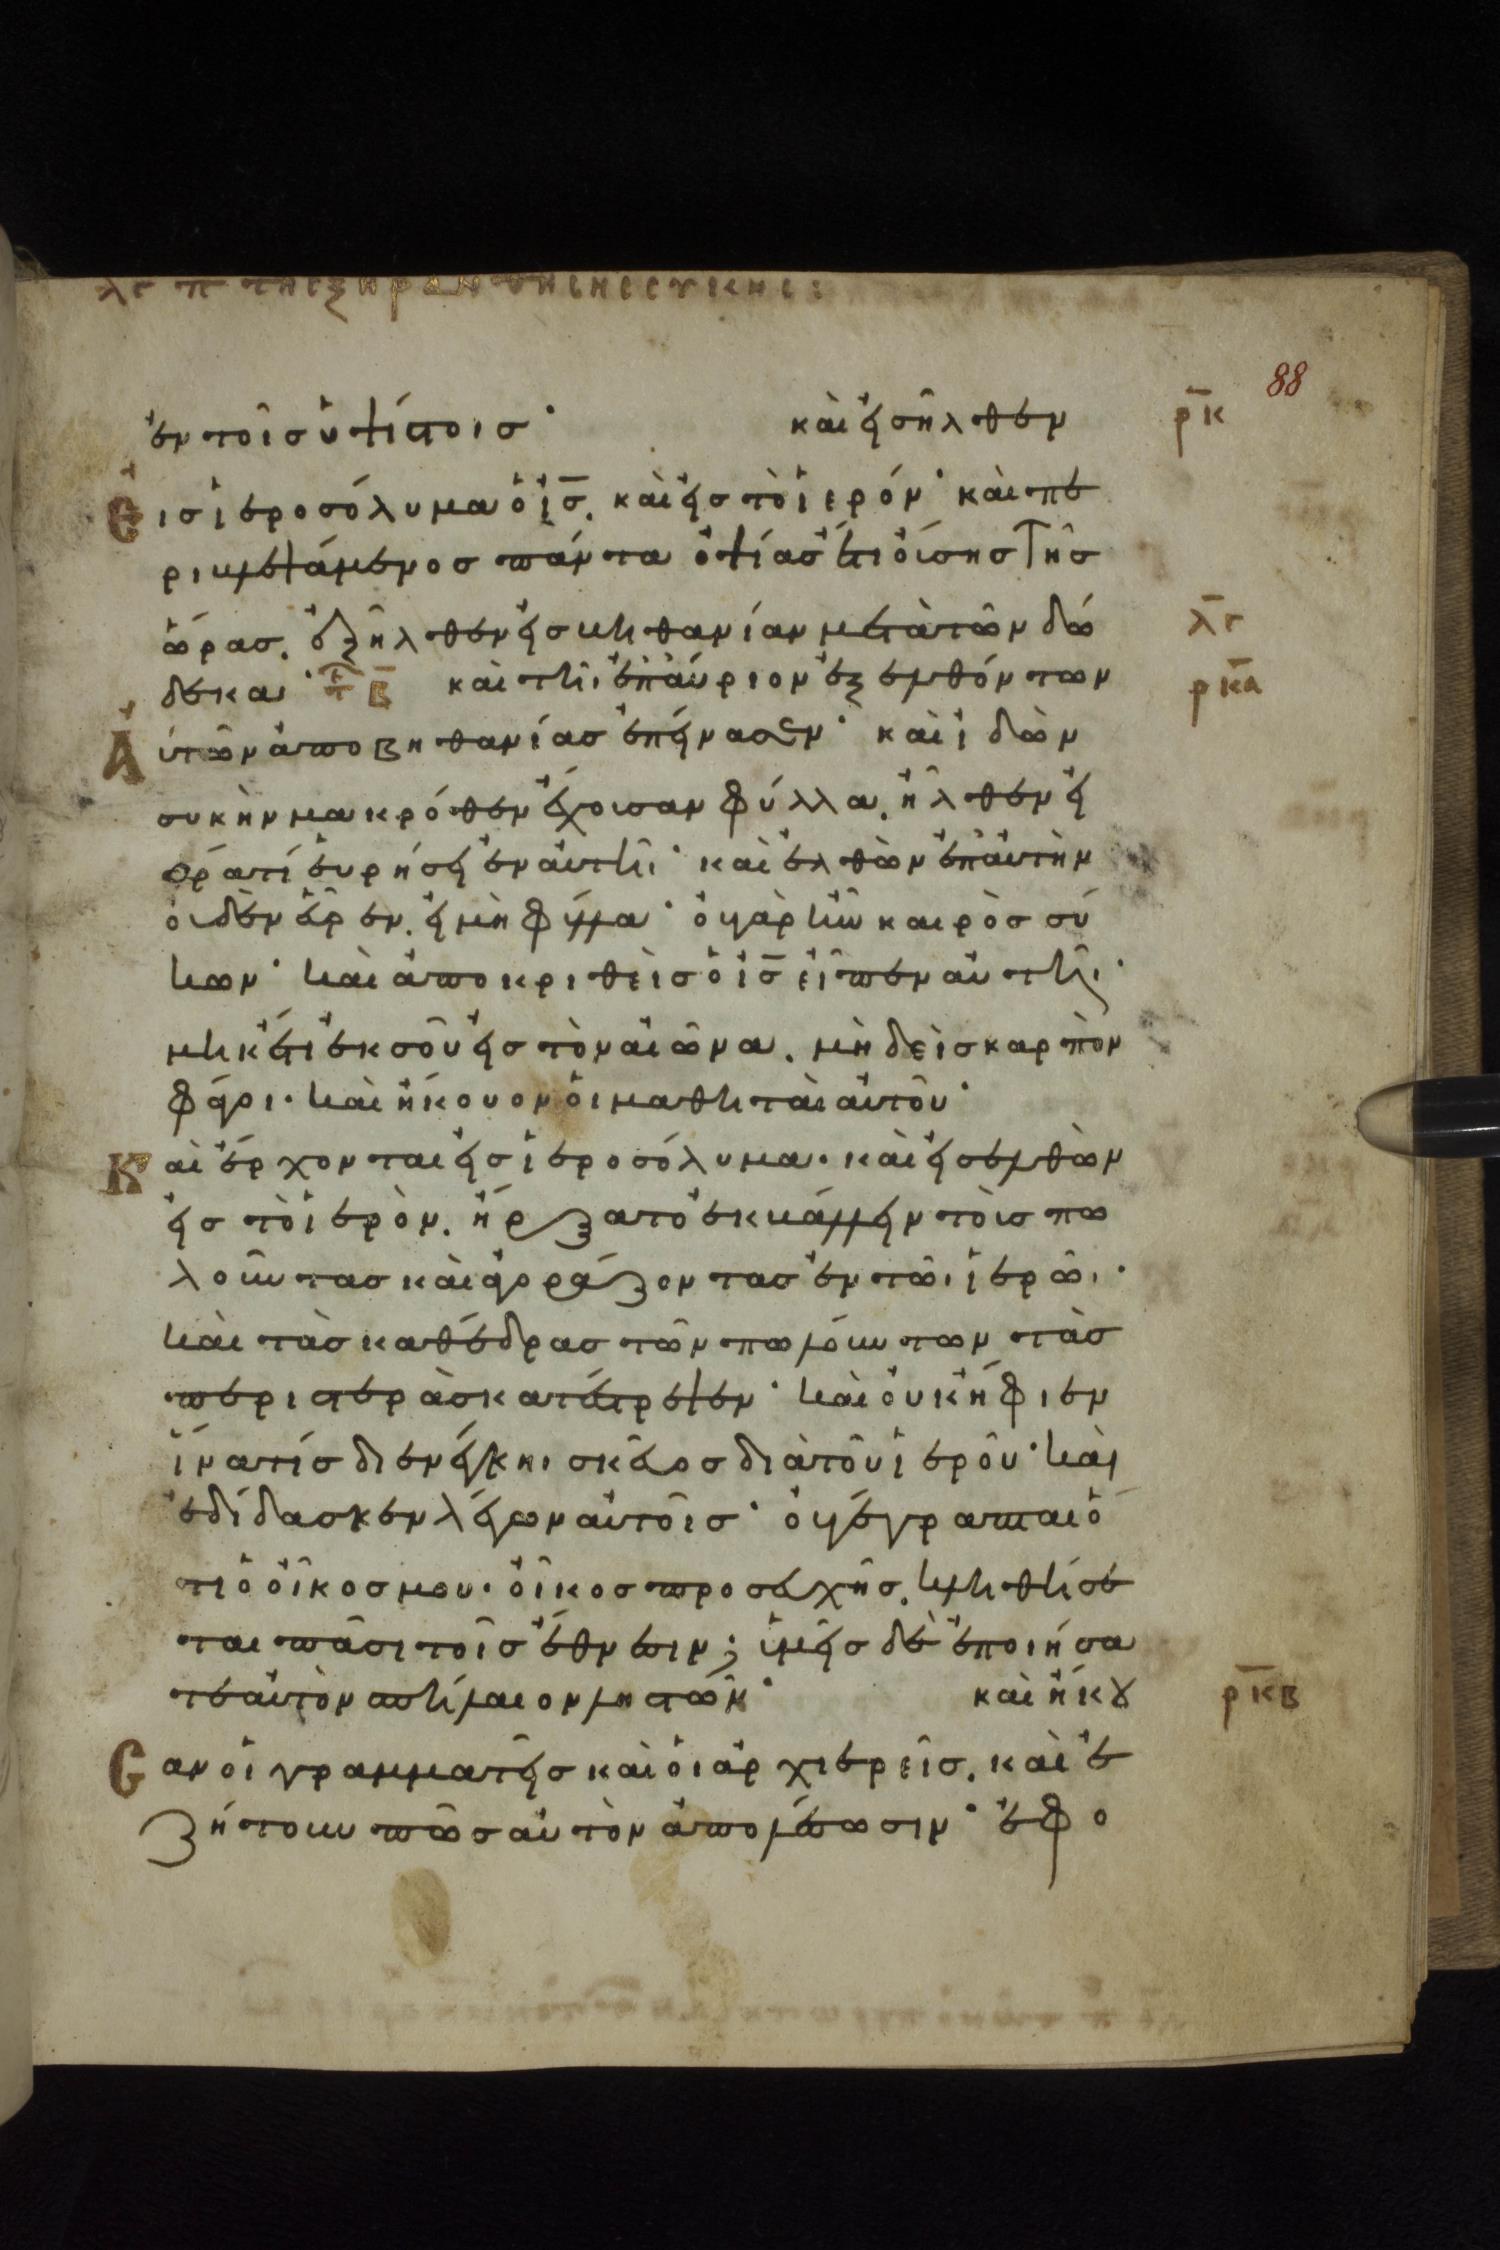 λγ π της ξηρανθησης συκης:
88
ἐν τοῖς ὑψίστοις· καὶ εἰσῆλθεν ρκ
εἰς ἱεροσόλυμα ὁ ἰς. καὶ εἰς τὸ ἱερόν· καὶ πε
ριβλεψάμενος πάντα ὀψίας ἤδη οὔσης τῆς
ὥρας. ἐξῆλθεν εἰς βηθανίαν μετὰ τῶν δώ λγ
δεκα· τε β καὶ τῆι ἐπαύριον ἐξελθόντων ρκα
αὐτῶν ἀπο βηθανίας ἐπείνασεν· καὶ ἰδὼν
συκὴν μακρόθεν ἔχουσαν φύλλα. ἦλθεν εἰ
ἄρα τί εὑρήσει ἐν αὐτῆι· καὶ ἐλθὼν ἐπ αὐτὴν
οὐδὲν εὗρεν. εἰ μὴ φύλλα· οὐ γὰρ ἦν καιρὸς σύ
κων· καὶ ἀποκριθεὶς ὁ ἰς εἶπεν αὐτῆι·
μηκέτι ἐκ σοῦ εἰς τὸν αἰῶνα. μὴδεὶς καρπὸν
φάγοι· καὶ ἤκουον οἱ μαθηταὶ αὐτοῦ·
Καὶ ἔρχονται εἰς ἱεροσόλυμα· καὶ εἰσελθὼν
εἰς τὸ ἱερὸν. ἤρξατο ἐκβάλλειν τοὺς πω
λοῦντας καὶ ἀγοράζοντας ἐν τῶι ἱερῶι·
καὶ τὰς καθέδρας τῶν πωλούντων τὰς
περιστερὰς κατέστρεψεν· καὶ οὐκ ἤφιεν
ἵνα τίς διενέγκηι σκεῦος διὰ τοῦ ἱεροῦ· καὶ
ἐδίδασκεν λέγων αὐτοῖς· οὐ γέγραπται ὅ
τι ὁ οἶκος μου· οἶκος προσευχῆς. κληθήσε
ται πᾶσι τοῖς ἔθνεσιν; ὑμεῖς δὲ ἐποιήσα
τε αὐτὸν σπήλαιον ληστῶν· καὶ ἤκου ρκβ
σαν οἱ γραμματεῖς καὶ οἱ ἀρχιερεῖς. καὶ ἐ
ζήτουν πῶς αὐτὸν ἀπολέσωσιν· ἐφο